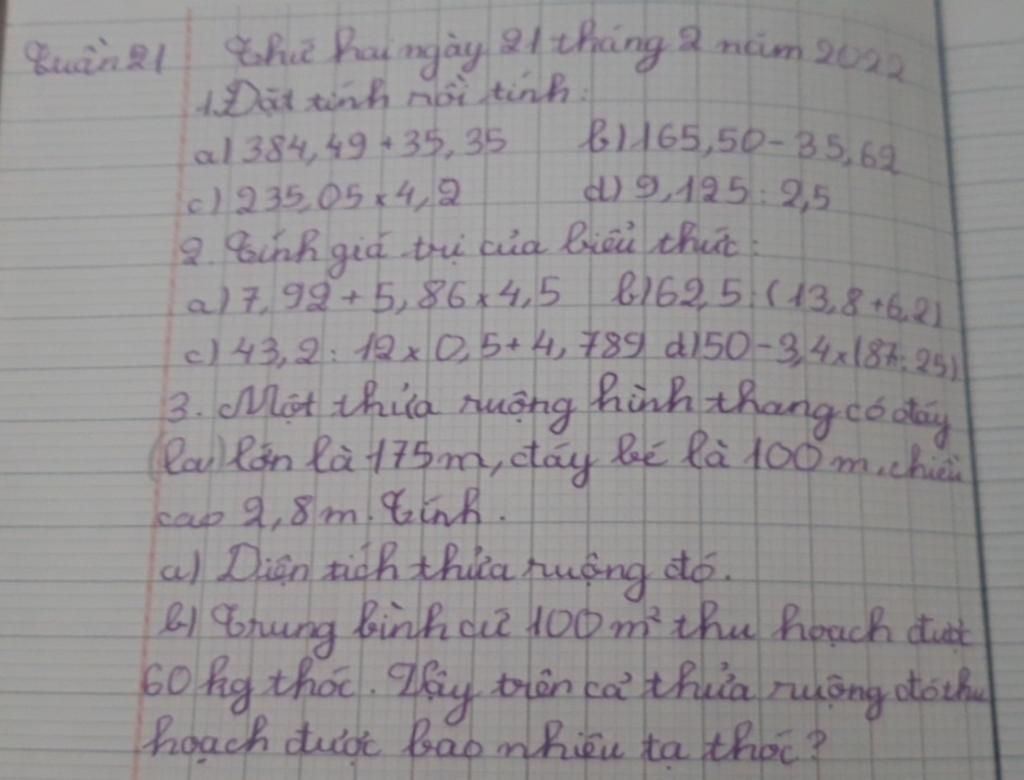 Tuần 21 Thứ hai ngày 21 tháng 2 năm 2022
1. Đặt tính rồi tính:
a) 384,49 + 35,35 b) 165,50 - 35,62
c) 235,05 x 4,2 d) 9,125 : 2,5
2. Tính giá trị của biểu thức:
a) 7,92 + 5,86 x 4,5 b) 62,5 : (13,8 + 6,2)
c) 43,2 : 12 x 0,5 + 4,789 d) 50 - 3,4 x ( : 25)
3. Một thửa ruộng hình thang có đáy
(la) lớn là 175m, đáy bé là 100m, chiều
cao 2,8m. Tính.
a) Diện tích thửa ruộng đó.
b) Trung bình cứ 100m² thu hoạch được
60kg thóc. Vậy trên cả thửa ruộng đó thu
hoạch được bao nhiêu tạ thóc?